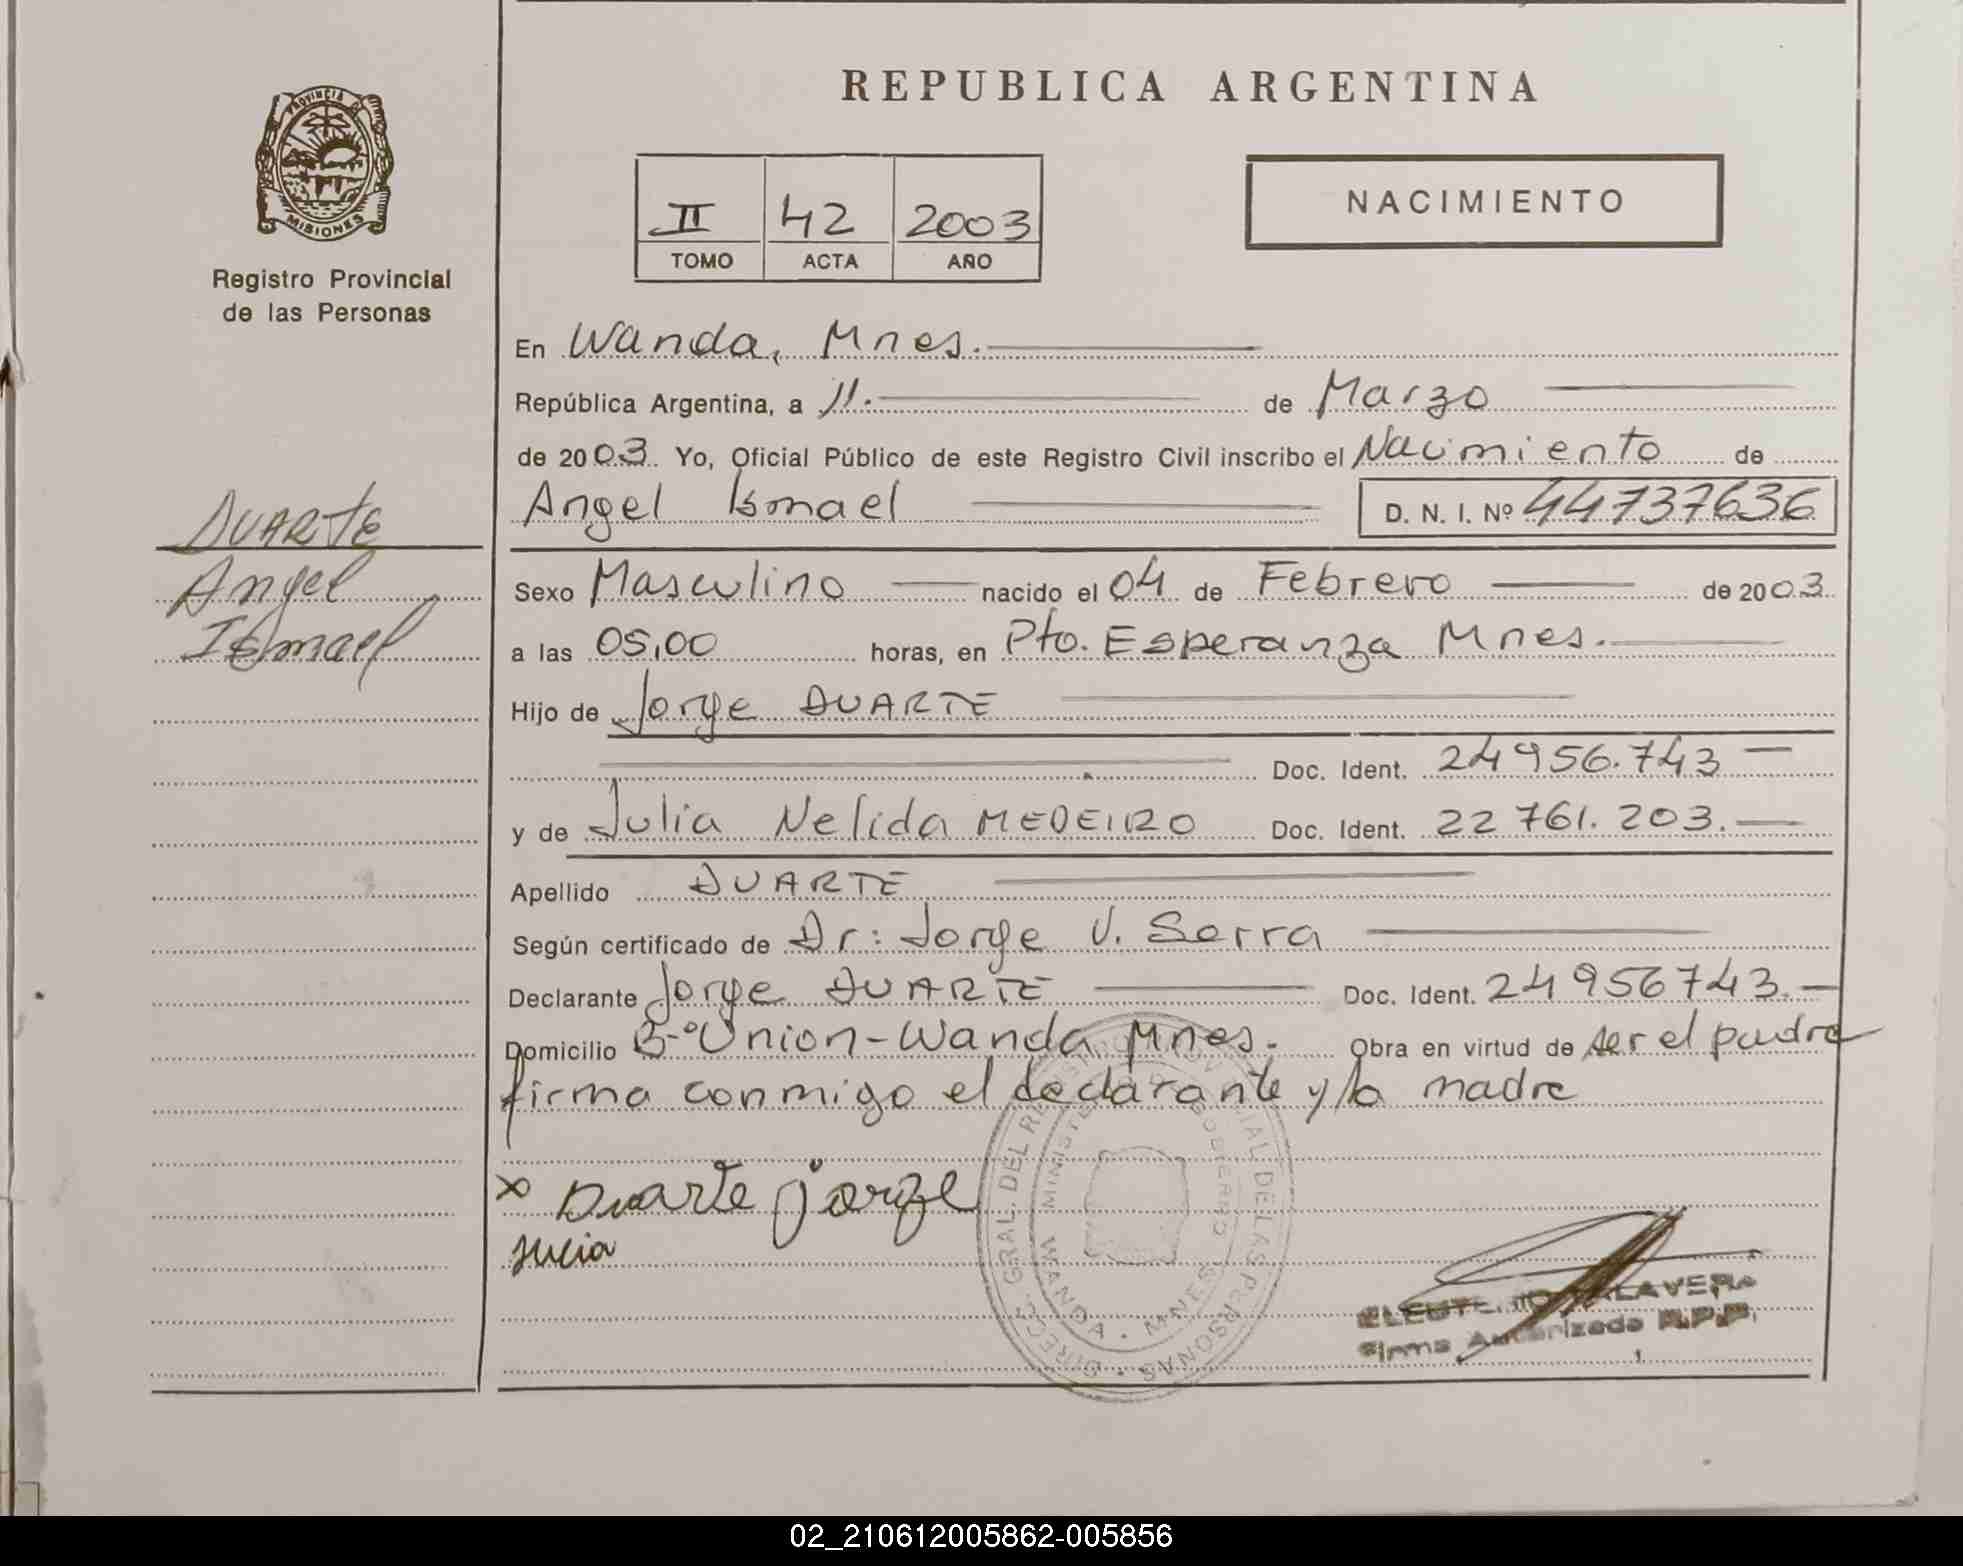 REPUBLICA ARGENTINA
PROVINCIA DE
MISIONES
Registro Provincial
de las Personas
II 42 2003
TOMO ACTA AÑO
NACIMIENTO
En Wanda, Mnes.
República Argentina, a 11. de Marzo
de 2003. Yo, Oficial Público de este Registro Civil inscribo el Nacimiento de
Angel Ismael D. N. I. Nº 44737636
DUARTE
Angel
Ismael
Sexo Masculino nacido el 04 de Febrero de 2003.
a las 05,00 horas, en Pto. Esperanza Mnes.
Hijo de Jorge DUARTE
Doc. Ident. 24956.743
y de Julia Nelida MEDEIRO Doc. Ident. 22 761.203.
Apellido DUARTE
Según certificado de Dr: Jorge V. Serra
Declarante Jorge DUARTE Doc. Ident. 24956743.
Domicilio B-º Union-Wanda Mnes. Obra en virtud de ser el padre
firma conmigo el declarante y la madre
x Duarte jorge
Julia
DIRECC. GRAL. DEL REGISTRO PROVINCIAL DE LAS PERSONAS
MINISTERIO DE GOBIERNO
WANDA - MNES
ELEUTERIO TALAVERA
Firma Autorizada R.P.P.
02_210612005862-005856